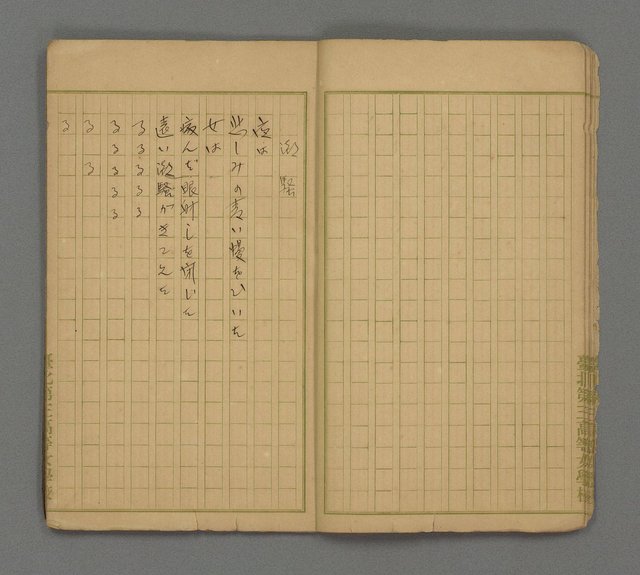 臺北第三高等女學校
潮騒
夜は
悲しみの青い幔をひいた
女は
病んだ眼射しを閉じた
遠い潮騒がきこえた
るるるるる
るるるるる
る る
る